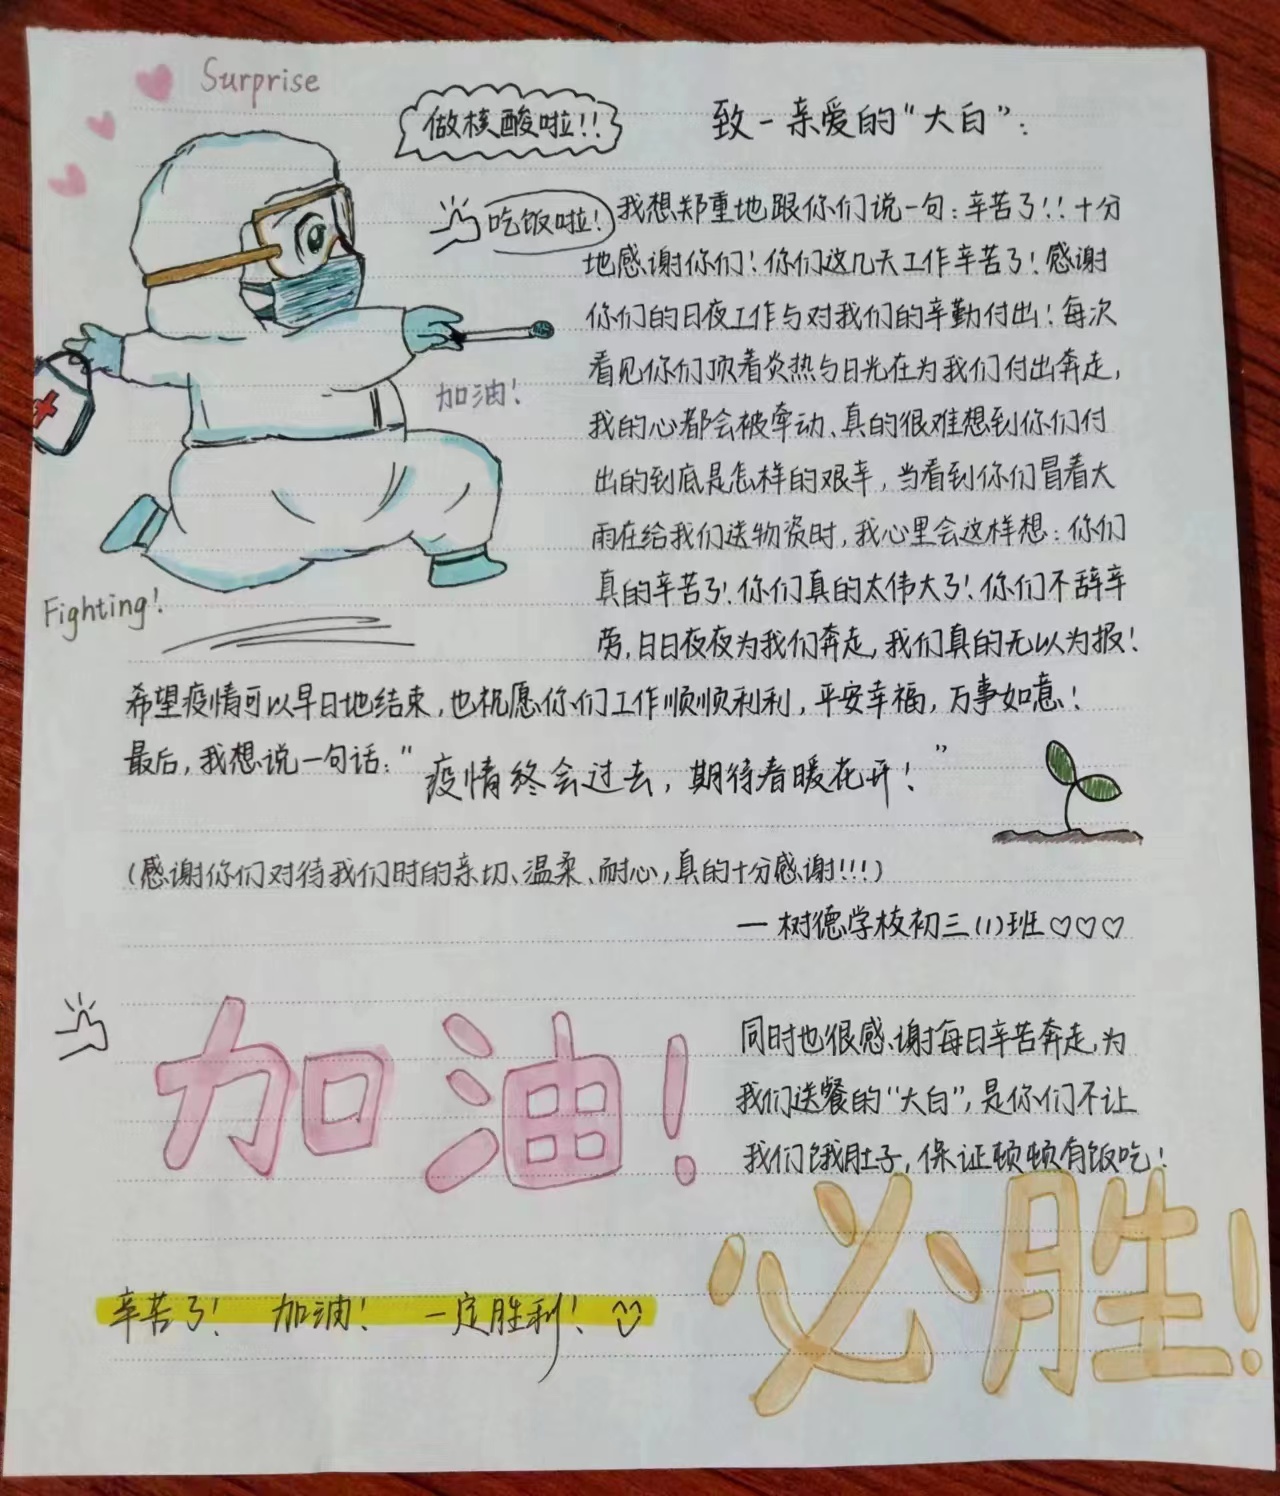 Surprise
做核酸啦!!
致一亲爱的“大白”:
吃饭啦!
我想郑重地跟你们说一句:辛苦了!!十分
地感谢你们!你们这几天工作辛苦了!感谢
你们的日夜工作与对我们的辛勤付出!每次
看见你们顶着炎热与日光在为我们付出奔走,
加油!
我的心都会被牵动、真的很难想到你们付
出的到底是怎样的艰辛,当看到你们冒着大
雨在给我们送物资时,我心里会这样想:你们
真的辛苦了!你们真的太伟大了!你们不辞辛
Fighting!
劳,日日夜夜为我们奔走,我们真的无以为报!
希望疫情可以早日地结束,也祝愿你们工作顺顺利利,平安幸福,万事如意!
最后,我想说一句话:“疫情终会过去,期待春暖花开!”
(感谢你们对待我们时的亲切、温柔、耐心,真的十分感谢!!!)
一树德学校初三(1)班♡♡♡
加油!
同时也很感谢每日辛苦奔走,为
我们送餐的“大白”,是你们不让
我们饿肚子,保证顿顿有饭吃!
必胜!
辛苦了! 加油! 一定胜利!